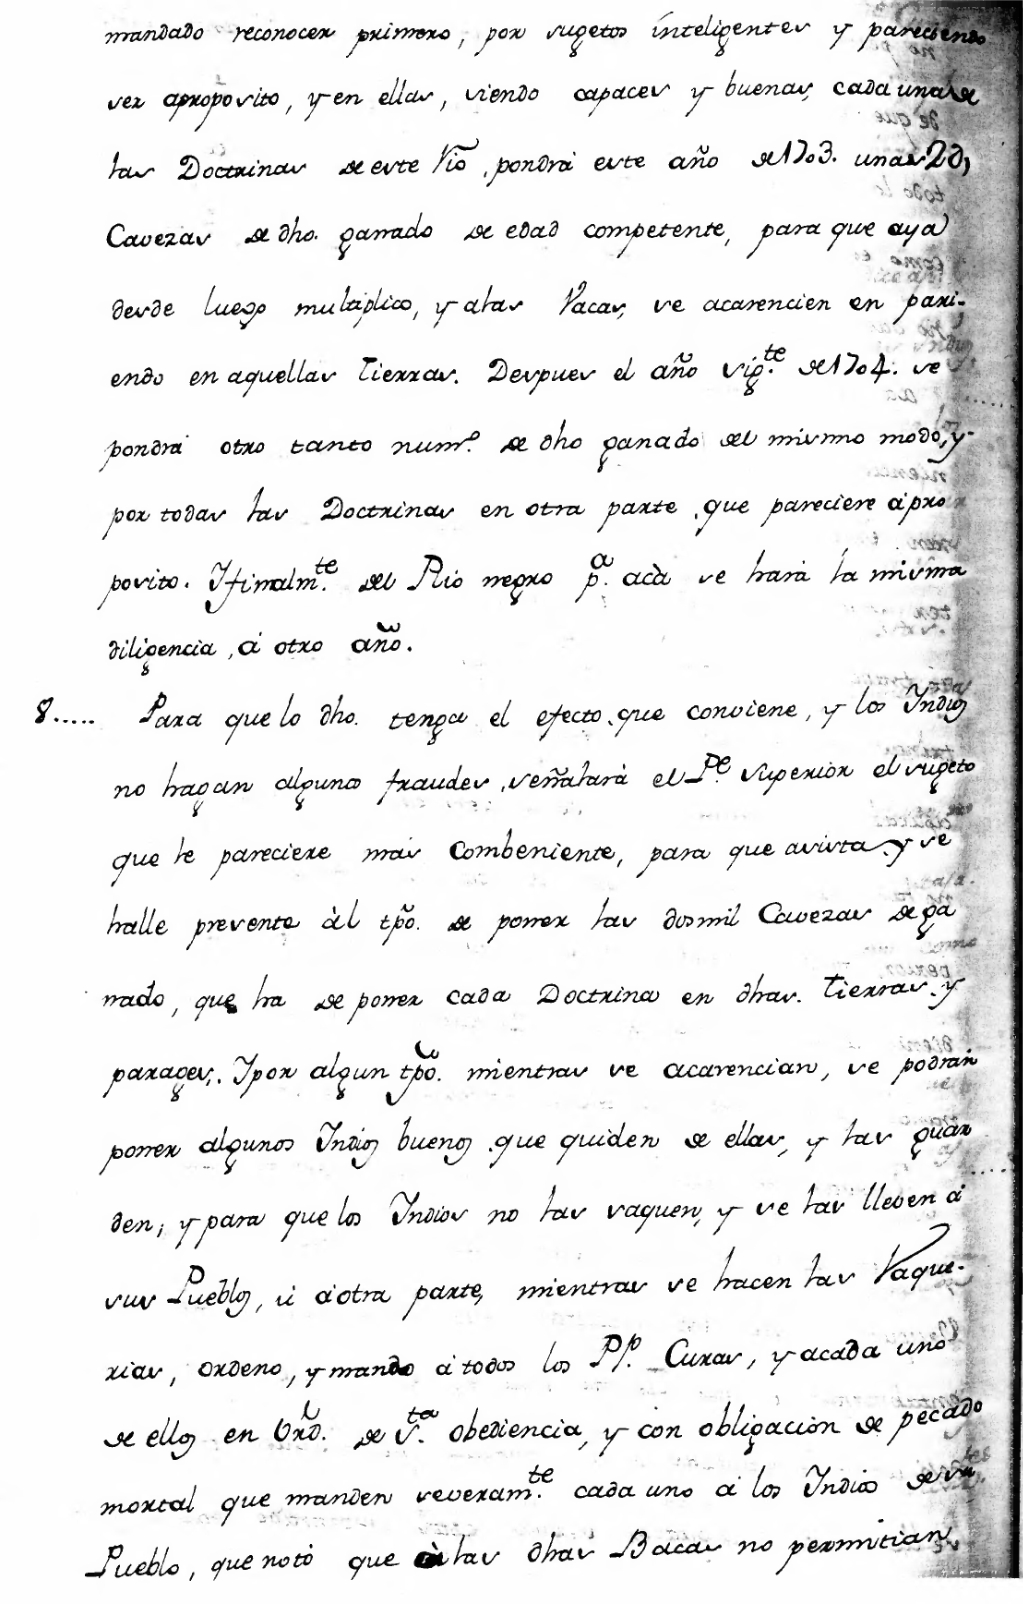 mandado reconocer primero, por sugetos inteligentes y pareciendo
ser aproposito, y en ellas, siendo capaces y buenas, cada una de
las Doctrinas de este Rio, pondrá este año de 1703. unas 2d,
Cavezas de dho. ganado de edad competente, para que aya
desde luego multiplico, y alas Vacas, se acarencien en pari-
endo en aquellas Tierras. Despues el año sig.te de 1704. se
pondrá otro tanto num.o de dho ganado del mismo modo, y
por todas las Doctrinas en otra parte, que pareciere á pro
posito. Ifinalm.te del Rio negro p.a acà se hará la misma
diligencia, á otro año.
8..... Para que lo dho. tenga el efecto, que conviene, y los Indios
no hagan algunos fraudes, señalarà el P.e Superior el sugeto
que le pareciere mas Combeniente, para que asista y se
halle presente àl tpõ. de poner las dosmil Cavezas de ga
nado, que ha de poner cada Doctrina en dhas. Tierras, y
parages,. Ipor algun tpõ. mientras se acarencian, se podràn
poner algunos Indios buenos, que quiden de ellas, y las guar
den; y para que los Indios no las vaquen, y se las lleven á
sus Pueblos, ù á otra parte, mientras se hacen las Vaque-
rias, ordeno, y mando á todos los PP.s Curas, y acada uno
de ellos en Vrd. de S.ta obediencia, y con obligación de pecado
mortal que manden severam.te cada uno á los Indios de su
Pueblo, que no tó que à las dhas Bacas no permitian